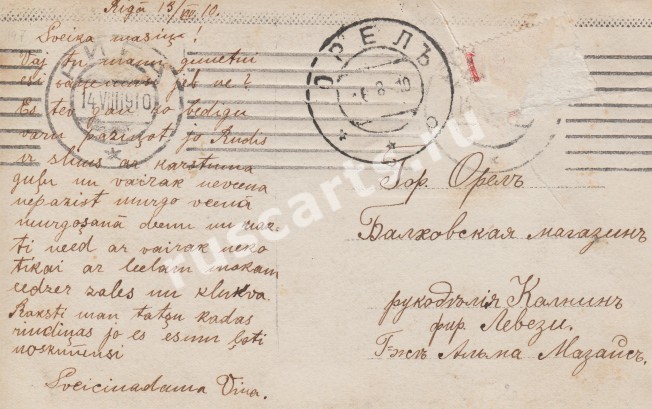 Rīgā 13/VIII 10.
Sveika masiņ!
Vaj tu manu
esi jeb ne?
Es tev gan ko bēdīgu
varu paziņot jo Rudis
ir slims ar karstuma
guļu un vairak nevena
nepazist murgo veenā
murgošanā deenu un nak-
ti need ar vairak neko
tikai ar leelam mokam
eedzer zales un klukva.
Raksti man tatšu kadas
rindiņas jo es esmu ļoti
noskumusi
Sveicinadama Vina.
РИГА
14 VIII 1910
ОРЕЛЪ
Гор. Орелъ
Балховская магазинъ
рукодѣлія Калнин
фир. Левези.
Гжѣ Альма Мазаисъ.
ruscarts.ru